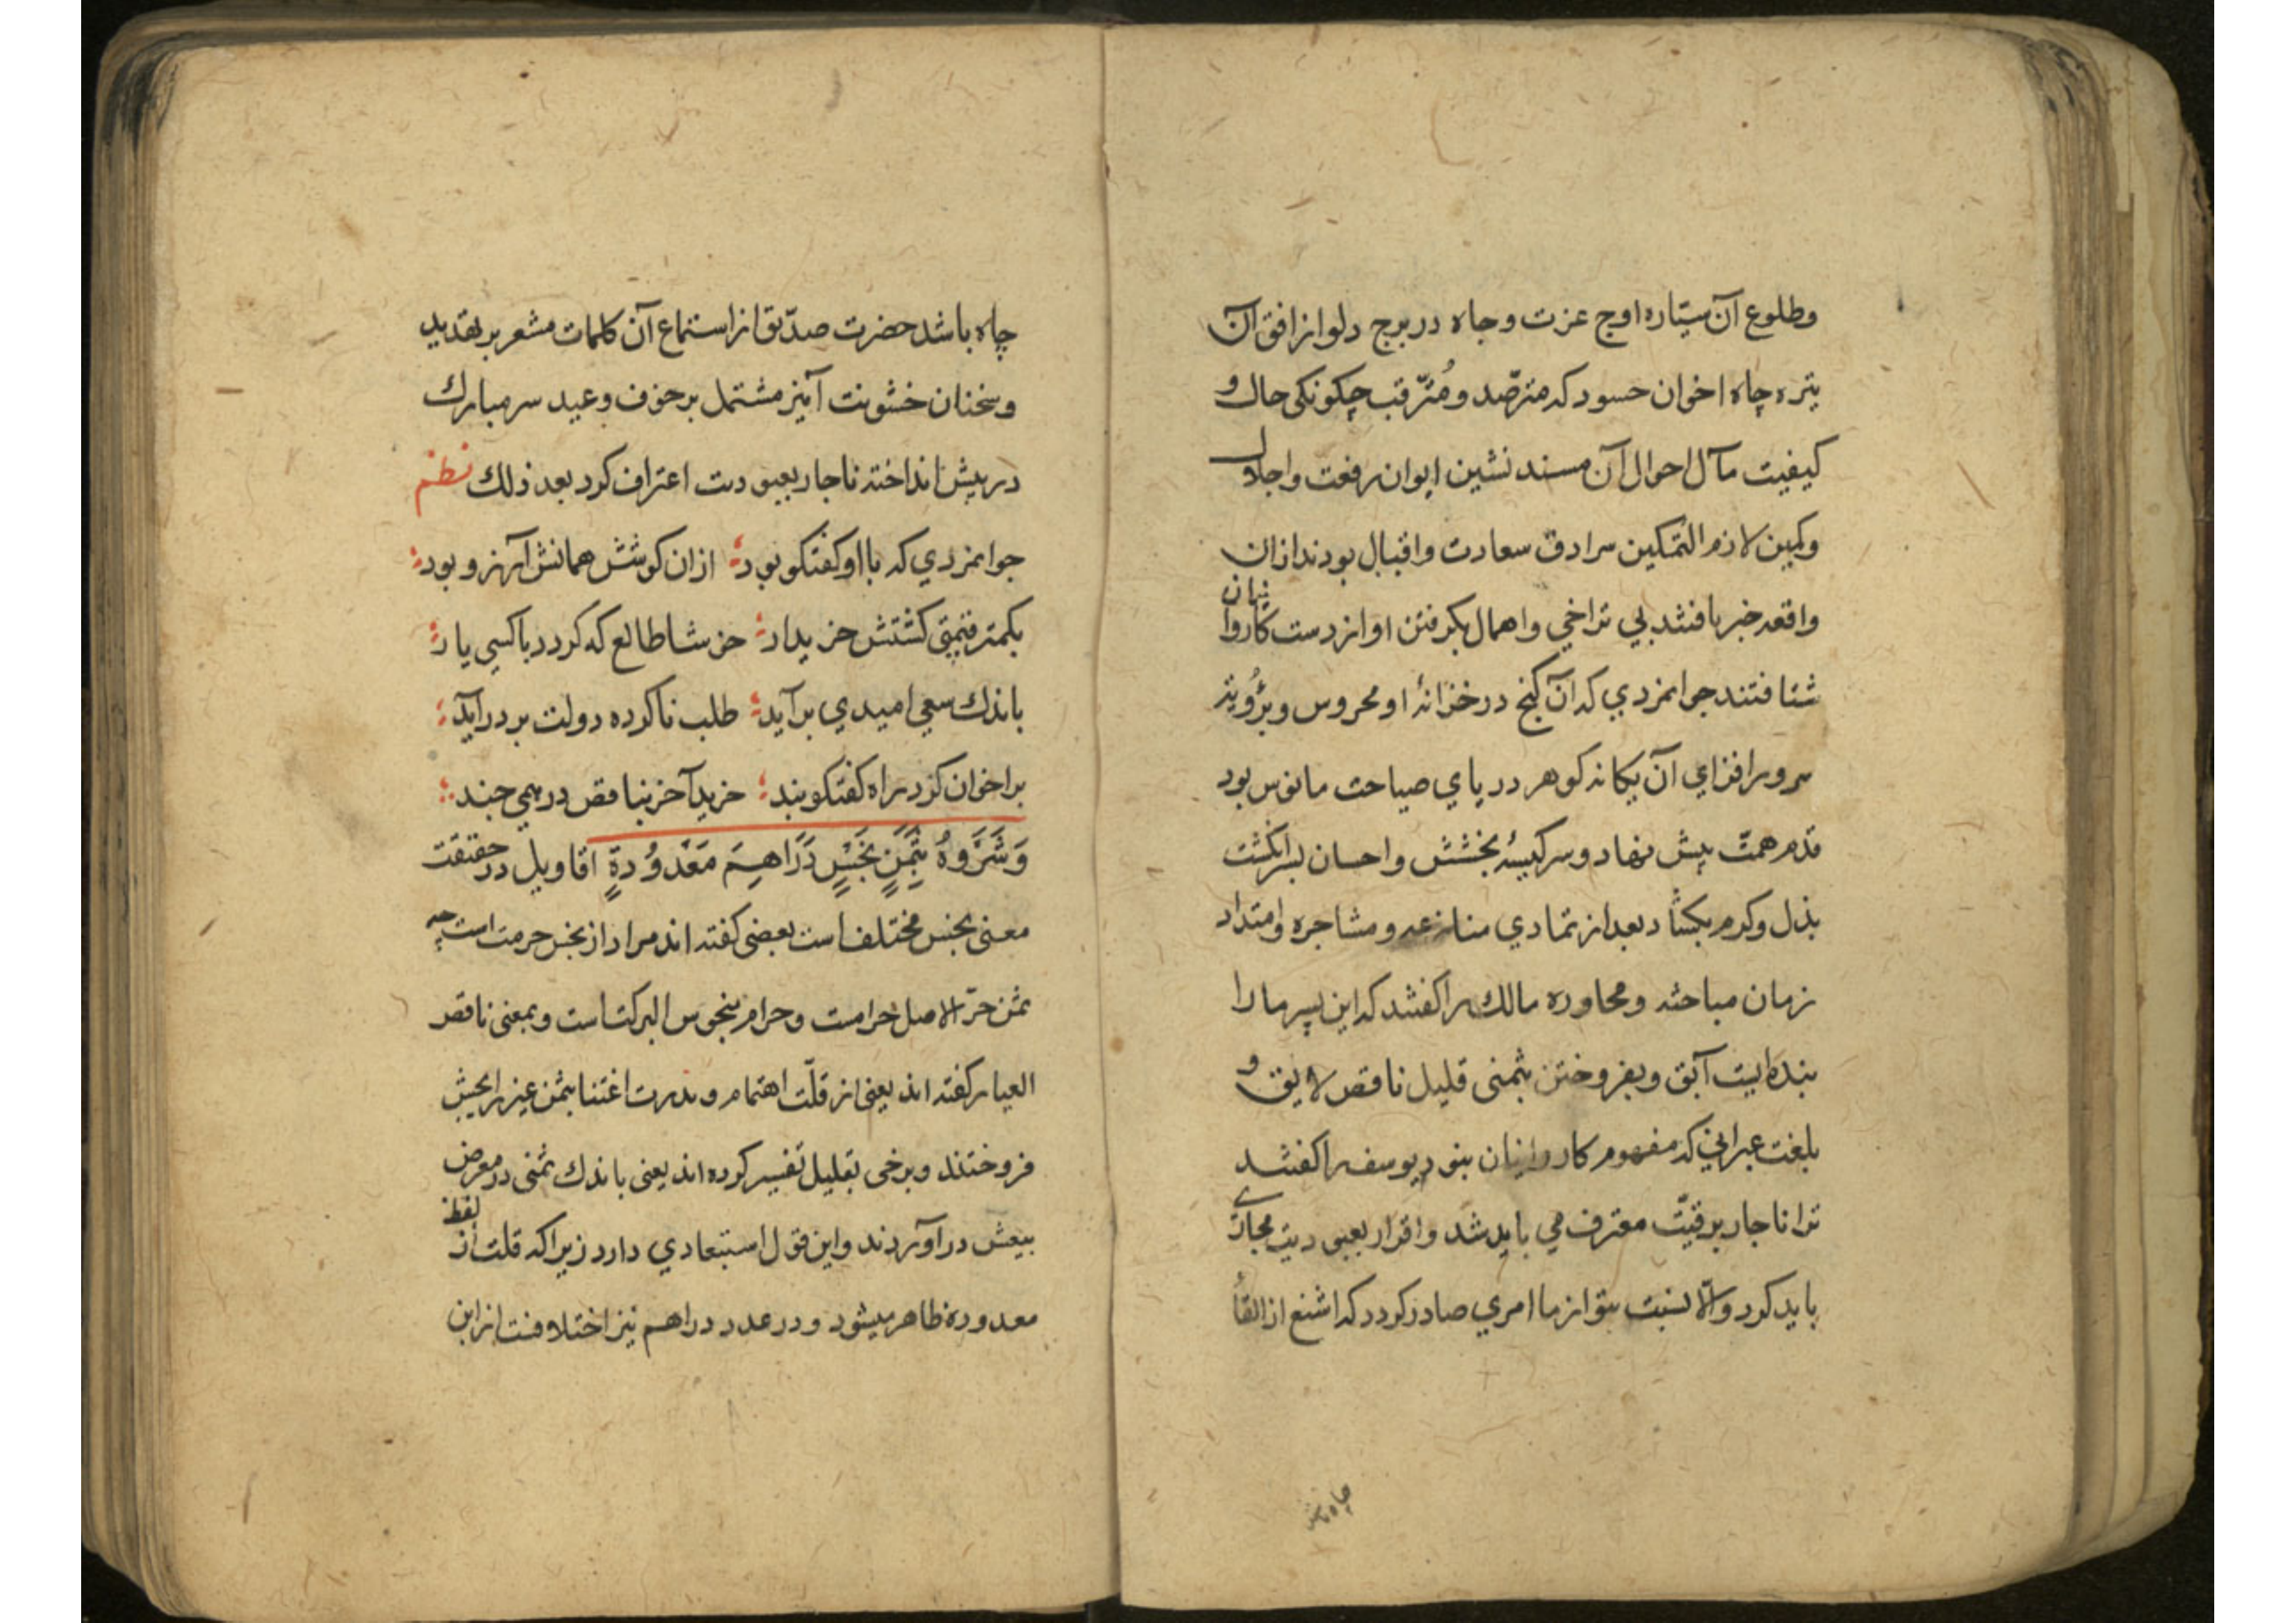 وطلوع آن ستاره اوج عزت وجاه در برج دلو از افق آن
تیره چاه اخوان حسود که مترصّد ومُترّقب چکونکی حال و
کیفیت مآل احوال آن مسند نشین ایوان رفعت واجلال
وکمین لازم التمکین سرادق سعادت واقبال بودند ازان
واقعه خبر یافتند بی تراخی واهمال بکرفتن او از دست کاروانیان
شتافتند جوانمردی که آن کنج در خزانهٔ او محروس و برؤیت
سرور افزای آن یکانه کوهر دریای صباحت مانوس بود
قدم همّت پیش نهاد وسر کیسهٔ بخشش واحسان بسر انکشت
بذل وکرم بکشاد بعد از تمادی منازعه ومشاجره وامتداد
زمان مباحثه ومحاوره مالک را کفتند که این پسر ما را
بنده ایست آبق وبفروختن بثمنی قلیل ناقص لایق و
بلغت عبرانی که مفهوم کاروانیان نبود یوسف را کفتند
ترا ناجار برقیّت معترف می باید شد واقرار بعبودیت مجازی
باید کرد والّا نسبت بتو از ما امری صادر کردد که اشنع از القأ
چاه باشد
چاه باشد حضرت صدّیق از استماع آن کلمات مشعر بر تهدید
وسخنان خشونت آمیز مشتمل بر خوف وعید سر مبارک
در پیش انداخته ناجار بعبودیت اعتراف کرد بعد ذلك نظم
جوانمردی که با او کفتکو بود ازان کوشش همانش آرزو بود
بکمتر قیمتی کشتش خریدار خوشا طالع که کردد با کسی یار
باندك سعی امیدی برآید طلب ناکرده دولت بر درآید
بر اخوان کز در راه کفتکو بند خرید آخر بناقص درهمی جند
وَشَرَوهُ بِثَمَنٍ بَخْسٍ دَرَاهِمَ مَعْدُودَةٍ اقاویل در حقیقت
معنی بخس مختلف است بعضی کفته اند مراد از بخس حرمت است چه
ثمن حرّ الاصل حرامست وحرام منحوس البرکت است وبمعنی ناقص
العیار کفته اند یعنی از قلّت اهتمام وندرت اغتنا بثمن غیر رایجش
فروختند وبرخی بقلیل تفسیر کرده اند یعنی باندك ثمنی در معرض
بیعش درآوردند واین قول استبعادی دارد زیرا که قلت از لفظ
معدوده ظاهر میشود ودر عدد دراهم نیز اختلافست ازین